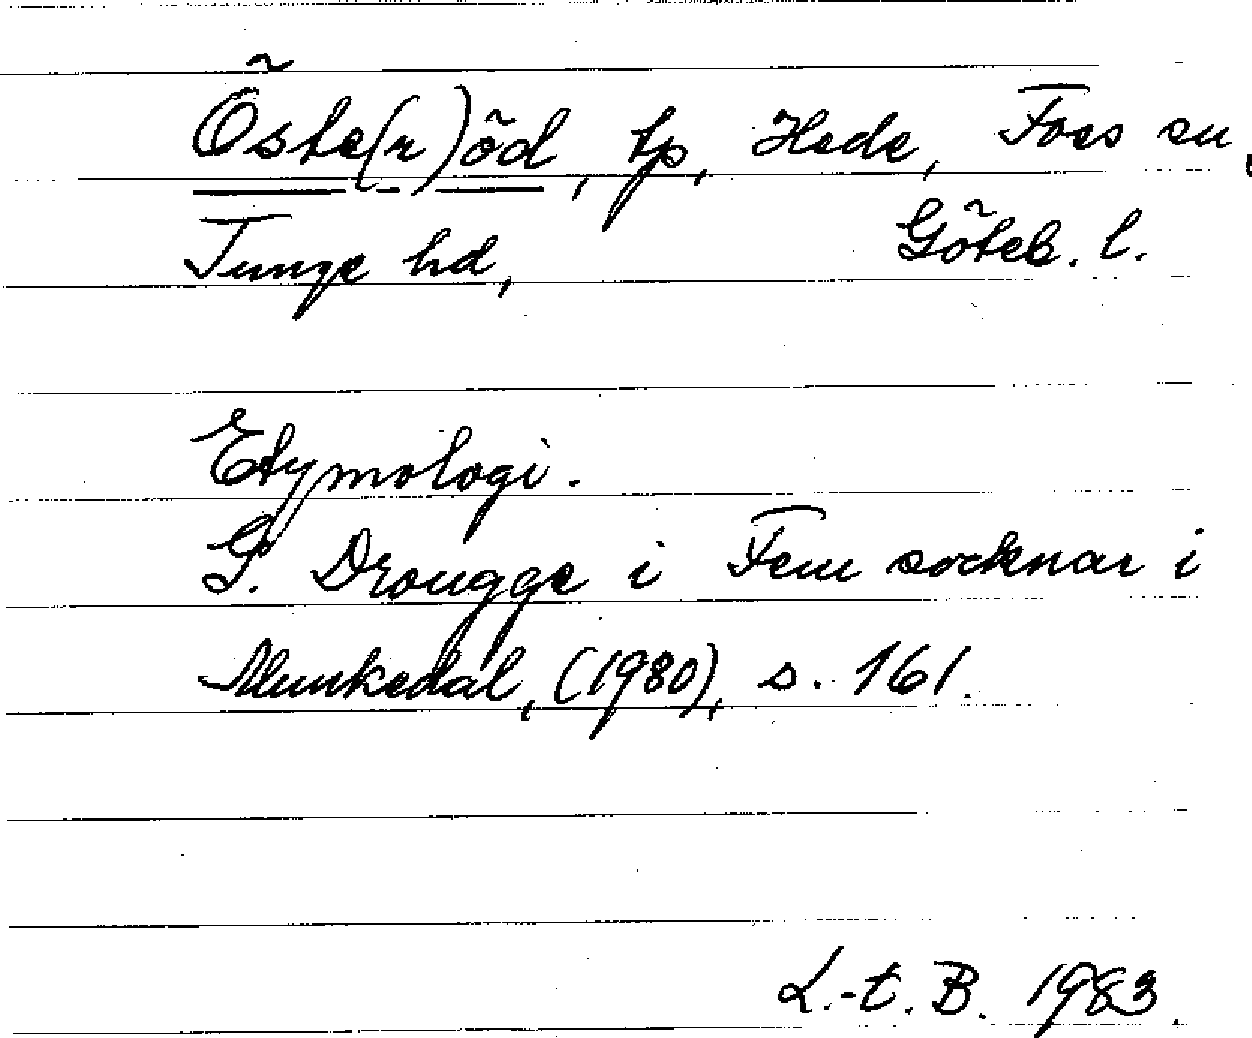 Öste(r)öd, tp, Hede, Foss sn,
Tunge hd, Göteb. l.
Etymologi.
G. Drougge i Fem socknar i
Munkedal, (1980), s. 161.
L.-t. B. 1983.